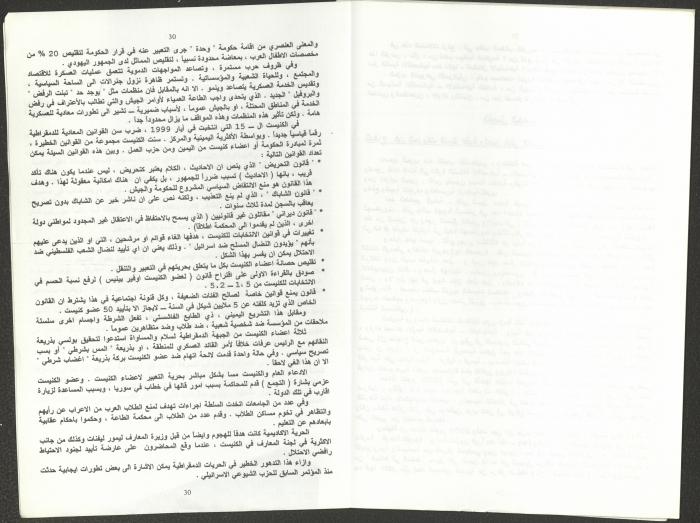 30
والمعنى العنصري من اقامة حكومة " وحدة " جرى التعبير عنه في قرار الحكومة لتقليص 20 % من
مخصصات الاطفال العرب ، بمعاضة محدودة نسبياً ، لتقليص المماثل لدى الجمهور اليهودي .
وفي ظروف حرب مستمرة ، وتصاعد المواجهات الدموية تتعمق عمليات العسكرة للاقتصاد
والمجتمع ، وللحياة الشعبية والمؤسساتية . وتستمر ظاهرة نزول جنرالات الى الساحة السياسية ،
وتقديس الخدمة العسكرية يتصاعد وينمو . الا انه بالمقابل فان منظمات مثل " يوجد حد " نبتت الرفض "
والبروفيل " الجديد . الذي يتحدى واجب الطاعة العمياء لأوامر الجيش والتي تطالب بالأعتراف في رفض
الخدمة في المناطق المحتلة ، او بالجيش عموماً ، لأسباب ضميرية ــ تشير الى تطورات معادية للعسكرية
هامة . ولكن تأثير هذه المنظمات وهذه المواقف ما يزال محدوداً جداً .
في الكنيست ال ــ 15 التي انتخبت في أيار 1999 ، ضرب سن القوانين المعادية للدمقراطية
رقماً قياسياً جديداً . وبواسطة الأكثرية اليمينية والمركز . سنت الكنيست مجموعة من القوانين الخطيرة ،
ثمرة لمبادرة الحكومة أو اعضاء كنيست من اليمين ومن حزب العمل . وبين هذه القوانين السيئة يمكن
تعداد القوانين التالية :
* " قانون التحريض " الذي ينص ان الاحاديث ، الكلام يعتبر كتحريض ، ليس عندما يكون هناك تأكد
قريب ، بأنها ( الاحاديث ) تسبب ضرراً للجمهور ، بل يكفي ان هناك امكانية معقولة لهذا . وهدف
هذا القانون هو منع الانتفاض السياسي المشروع للحكومة والجيش .
* " قانون الشاباك " ، الذي لم يمنع التعذيب ، ولكنه نص على ان ناشر خبر عن الشاباك بدون تصريح
يعاقب بالسجن لمدة ثلاث سنوات .
* " قانون ديراني " مقاتلون غير قانونيين ( الذي يسمح بالاحتفاظ في الاعتقال غير المحدود لمواطني دولة
اخرى ، الذين لم يقدموا الى المحكمة اطلاقاً) .
* تغييرات في قوانين الانتخابات للكنيست ، هدفها الغاء قوائم او مرشحين ، التي او الذين يدعى عليهم
بأنهم " يؤيدون النضال المسلح ضد اسرائيل " . وذلك يعني ان اي تأييد لنضال الشعب الفلسطيني ضد
الاحتلال يمكن ان يفسر بهذا الشكل .
* تقليص حصانة اعضاء الكنيست بكل ما يتعلق بحريتهم في التعبير والتنقل .
* صودق بالقراءة الأولى على اقتراح قانون ( لعضو الكنيست اوفير بينيس ) لرفع نسبة الحسم في
الانتخابات للكنيست من 1،5 ــ 5،2 .
* قانون يمنع قوانين خاصة لصالح الفئات الضعيفة ، وكل قنونة اجتماعية في هذا يشترط ان القانون
الخاص الذي تزيد كلفته عن 5 ملايين شيكل في السنة ــ لايجاز الا بتأييد 50 عضو كنيست .
ومقابل هذا التشريع اليميني ، ذي الطابع الفاشستي ، تفعل الشرطة واجسام اخرى سلسلة
ملاحقات من المؤسسة ضد شخصية شعبية ، ضد طلاب وضد متظاهرين عموماً .
ثلاثة اعضاء الكنيست من الجبهة الدمقراطية لسلام والمساواة استدعوا لتحقيق بوليسي بذريعة
التقائهم مع الرئيس عرفات خلافاً لأمر القائد العسكري للمنطقة ، او بذريعة " المس بشرطي " أو بسبب
تصريح سياسي . وفي حالة واحدة قدمت لائحة اتهام ضد عضو كنيست بركة بذريعة " اغضاب شرطي "
الا ان هذا الغي لاحقاً .
الادعاء العام والكنيست مسا بشكل مباشر بحرية التعبير لاعضاء الكنيست . وعضو الكنيست
عزمي بشارة ( التجمع ) قدم للمحاكمة بسبب امور قالها في خطاب في سوريا ، وبسبب المساعدة لزيارة
اقارب في تلك الدولة .
وفي عدد من الجامعات اتخذت السلطة اجراءات تهدف لمنع الطلاب العرب من الاعراب عن رأيهم
والتظاهر في تخوم مساكن الطلاب . وقدم عدد من الطلاب الى محكمة الطاعة ، وحكموا باحكام عقابية
بابعادهم عن التعليم .
الحرية الاكاديمية كانت هدفاً للهجوم وايضاً من قبل وزيرة المعارف ليمور ليفنات وكذلك من جانب
الاكثرية في لجنة المعارف في الكنيست ، عندما وقع المحاضرون على عارضة تأييد لجنود الاحتياط
رافضي الاحتلال .
وازاء هذا التدهور الخطير في الحريات الدمقراطية يمكن الاشارة الى بعض تطورات ايجابية حدثت
منذ المؤتمر السابق للحزب الشيوعي الاسرائيلي .
30